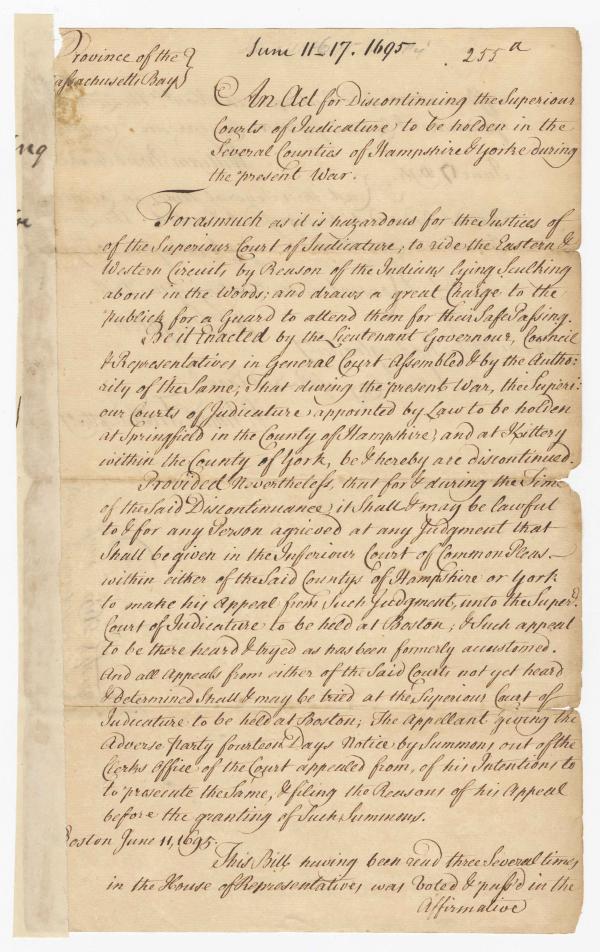 Province of the
June 11-17. 1695
255a
assachusetts Bay
An Act for Discontinuing the Superiour
Courts of Judicature to be holden in the
Several Counties of Hampshire & Yorke during
the present War.
Forasmuch as it is hazardous for the Justices of
of the Superiour Court of Judicature, to ride the Eastern &
Western Circuits by Reason of the Indians lying Sculking
about in the Woods; and draws a great Charge to the
publick for a Guard to attend them for their Safe Passing.
Be it Enacted by the Lieutenant Governour, Council
& Representatives in General Court Assembled & by the Autho-
rity of the Same; That during the present War, the Superi-
our Courts of Judicature appointed by Law to be holden
at Springfield in the County of Hampshire, and at Kittery
within the County of York, be & hereby are discontinued.
Provided Nevertheless, that for & during the Time
of the Said Discontinuance, it Shall & may be lawful
to & for any Person agrieved at any Judgment that
Shall be given in the Inferiour Court of Common Pleas
within either of the Said Countys of Hampshire or York
to make his Appeal from Such Judgment, unto the Superr.
Court of Judicature to be held at Boston; & Such appeal
to be there heard & tryed as has been formerly accustomed.
And all Appeals from either of the Said Courts not yet heard
& Determined Shall & may be tried at the Superiour Court of
Judicature to be held at Boston; The Appellant giving the
Adverse Party fourteen Days Notice by Summons out of the
Clerks Office of the Court appealed from, of his Intentions to
to prosecute the Same, & filing the Reasons of his Appeal
before the granting of Such Summons.
Boston June 11, 1695.
This Bill having been read three Several times
in the House of Representatives was Voted & pass'd in the
Affirmative